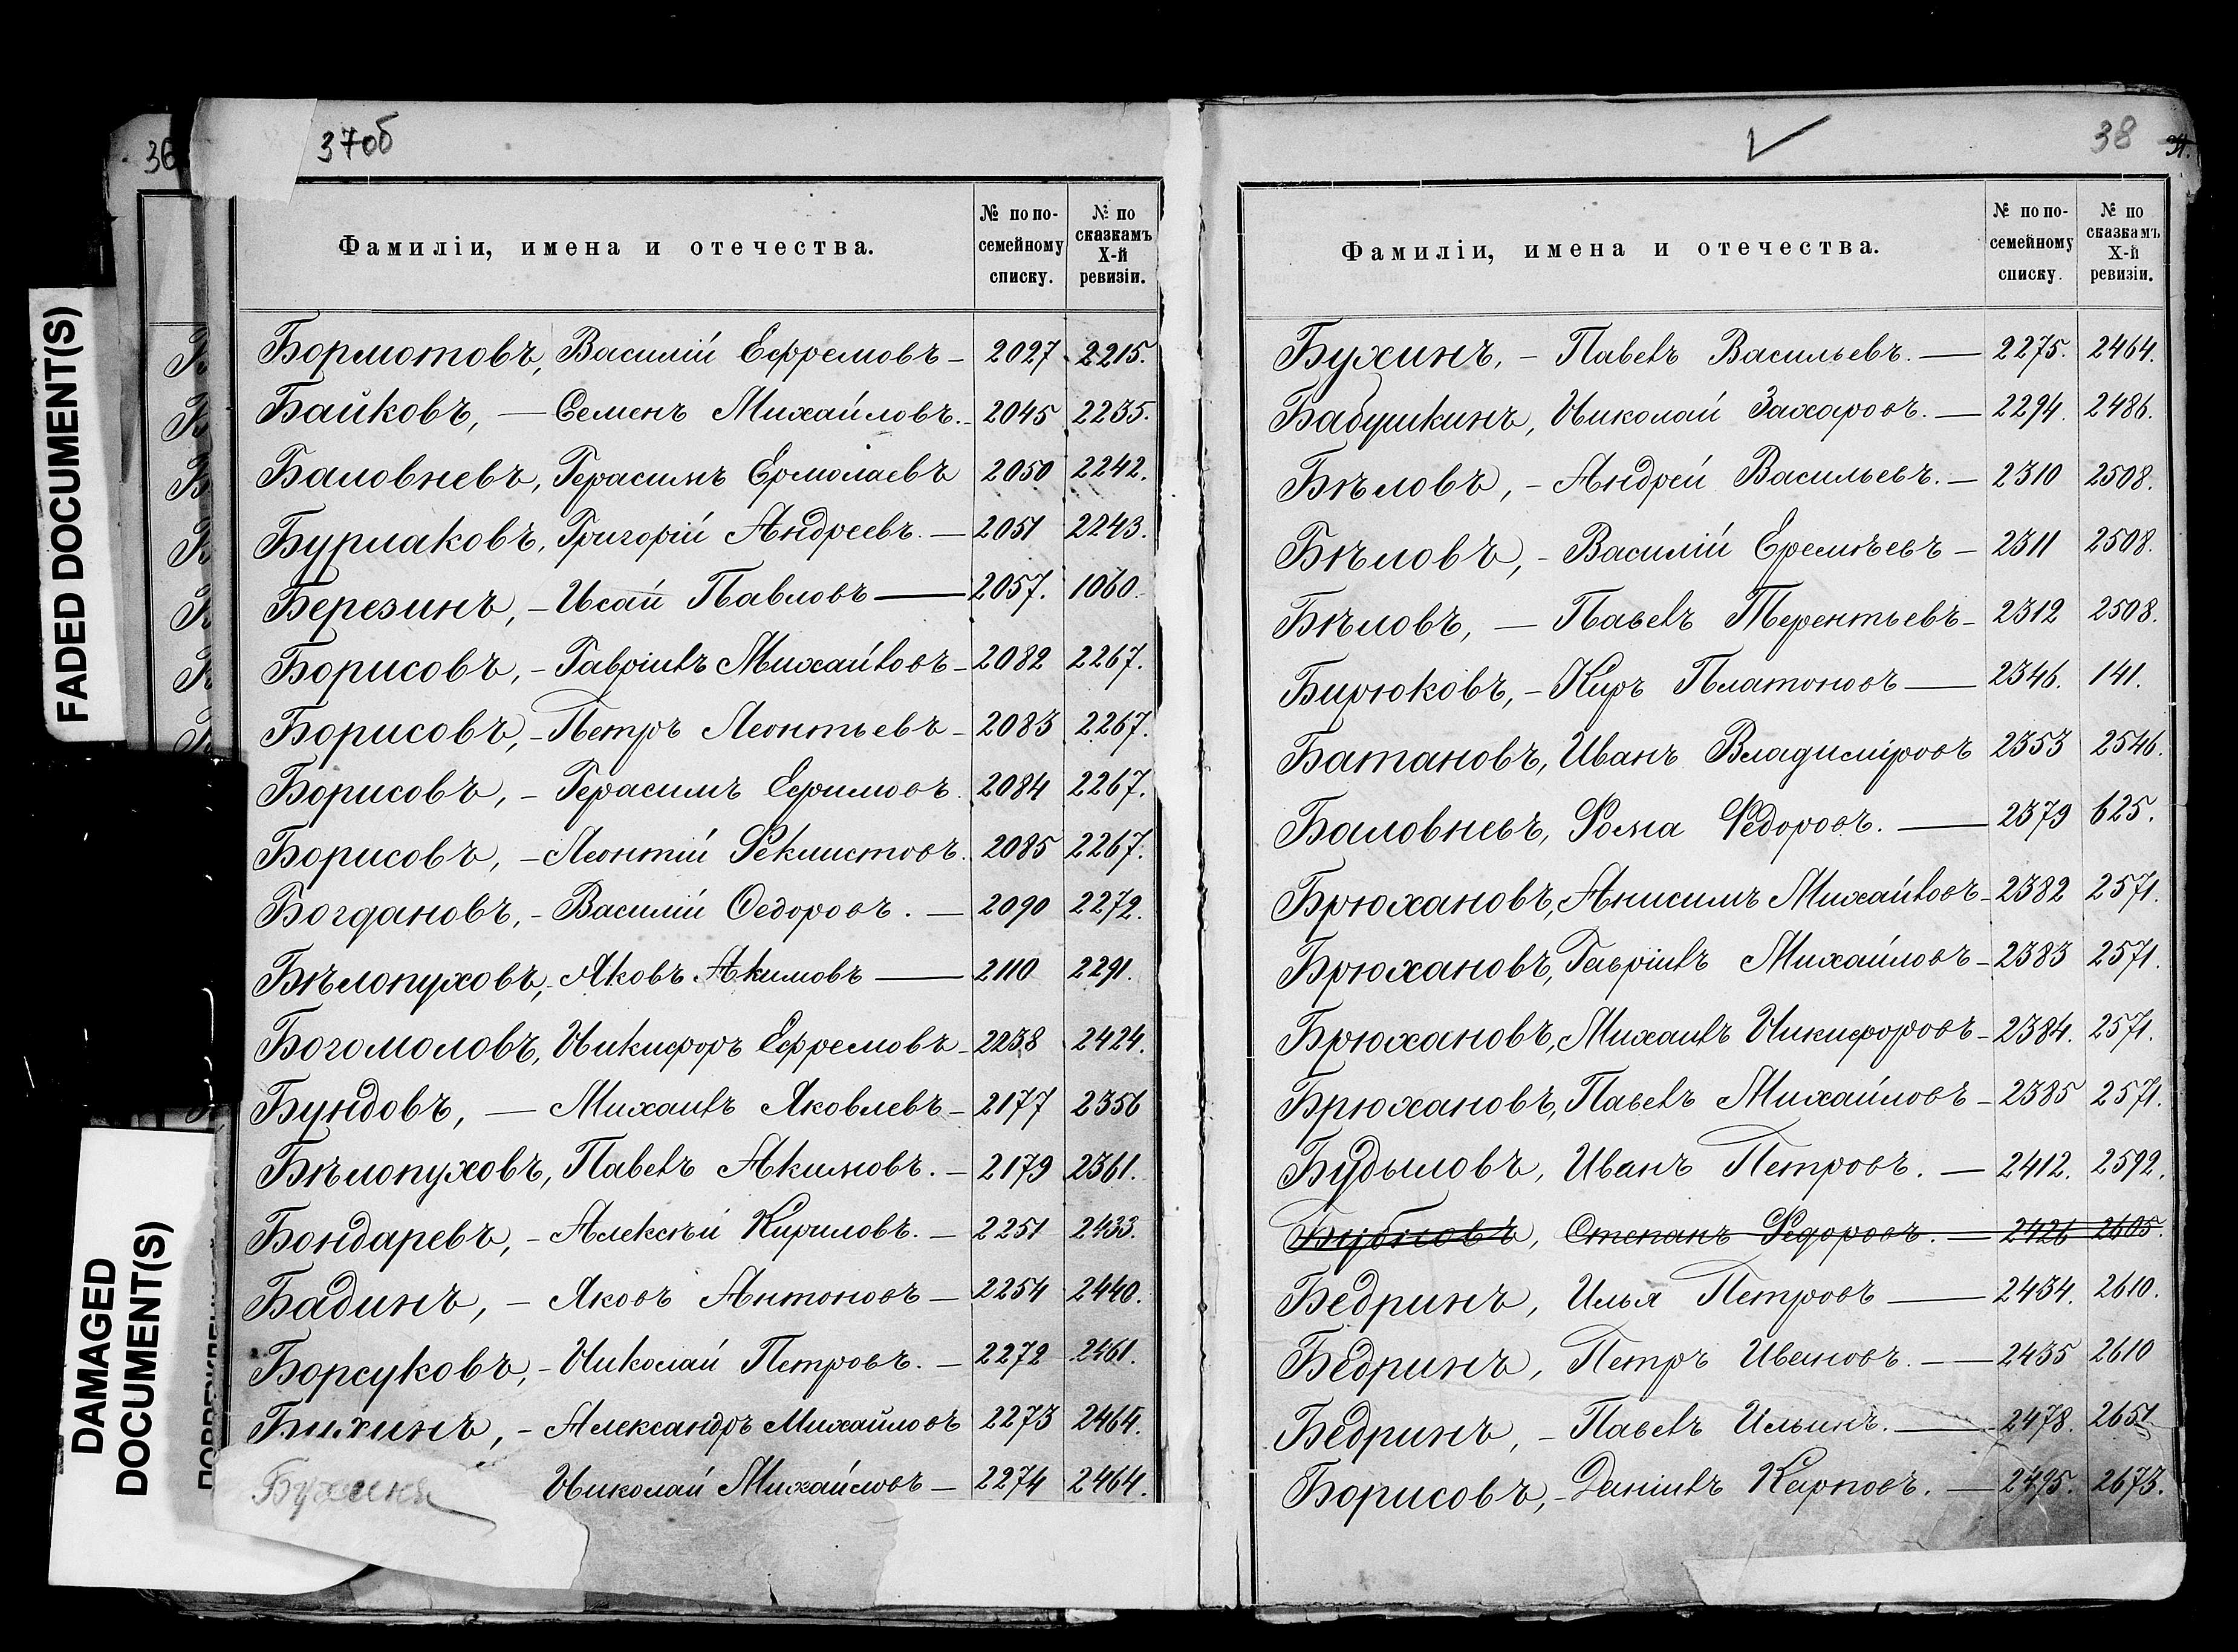 FADED DOCUMENT(S)
DAMAGED
DOCUMENT(S)
36
37об
Фамиліи, имена и отечества.
№ по по-
семейному
списку.
№ по
сказкамъ
X-й
ревизіи.
Бормотовъ, Василій Ефремовъ – 2027 2215.
Байковъ, — Семенъ Михайловъ. 2045 2235.
Баловневъ, Герасимъ Ермолаевъ 2050 2242.
Бурлаковъ, Григорій Андреевъ. — 2051 2243.
Березинъ, – Исай Павловъ — 2057. 1060.
Борисовъ, – Гавріилъ Михайловъ – 2082 2267.
Борисовъ, – Петръ Леонтьевъ – 2083 2267.
Борисовъ, – Герасимъ Ефимовъ 2084 2267.
Борисовъ, – Леонтій Феклистовъ. 2085 2267.
Богдановъ, – Василій Ѳедоровъ. — 2090 2272.
Бѣлопуховъ, Яковъ Акимовъ — 2110 2291.
Богомоловъ, Никифоръ Ефремовъ – 2238 2424.
Бундовъ, — Михаилъ Яковлевъ – 2177 2356
Бѣлопуховъ, Павелъ Акимовъ. – 2179 2361.
Бондаревъ, – Алексѣй Кириловъ. – 2251 2433.
Бадинъ, – Яковъ Антоновъ – 2254 2440.
Борсуковъ, – Николай Петровъ. – 2272 2461.
Бухинъ, – Александръ Михайловъ 2273 2464.
Бухинъ Николай Михайловъ – 2274 2464.
38
Фамиліи, имена и отечества.
№ по по-
семейному
списку.
№ по
сказкамъ
X-й
ревизіи.
Бухинъ, – Павелъ Васильевъ. — 2275. 2464.
Бабушкинъ, Николай Захаровъ. — 2294. 2486.
Бѣловъ, – Андрей Васильевъ. – 2310 2508.
Бѣловъ, – Василій Еремѣевъ – 2311 2508.
Бѣловъ, — Павелъ Терентьевъ – 2312 2508.
Бирюковъ, – Киръ Платоновъ — 2346. 141.
Батановъ, Иванъ Владиміровъ 2353 2546.
Баловневъ, Фома Федоровъ. — 2379 625.
Брюхановъ, Анисимъ Михайловъ – 2382 2571.
Брюхановъ, Гавріилъ Михайловъ – 2383 2571.
Брюхановъ, Михаилъ Никифоровъ – 2384. 2571.
Брюхановъ, Павелъ Михайловъ – 2385 2571.
Будыловъ, Иванъ Петровъ. — 2412. 2592.
Бубновъ, Степанъ Федоровъ. — 2426 2605.
Бедринъ, Илья Петровъ — 2434. 2610.
Бедринъ, Петръ Ивановъ. — 2435 2610
Бедринъ, – Павелъ Ильинъ. — 2478. 2651
Борисовъ, – Даніилъ Карповъ. — 2495. 2673.